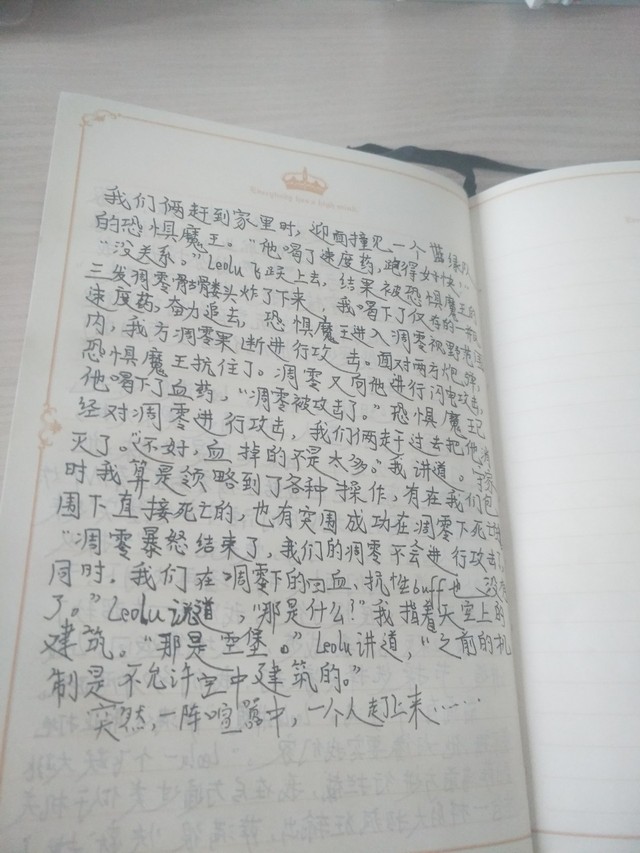 我们俩赶到家里时,迎面撞见一个蓝绿队
的恐惧魔王。“他喝了速度药,跑得好快…
“没关系。”Leolu飞跃上去,结果被恐惧魔王的
三发凋零骷髅头炸了下来,我喝下了仅存的一
速度药,奋力追去,恐惧魔王进入凋零视野范围
内,我方凋零果断进行攻击。面对两方炮弹,
恐惧魔王抗住了。凋零又向他进行闪电攻击,
他喝下了血药,“凋零被攻击了。”恐惧魔王已
经对凋零进行攻击,我们俩赶过去把他消
灭了。“还好,血掉的不是太多。”我讲道。
时我算是领略到了各种操作,有在我们包
围下直接死亡的,也有突围成功在凋零下死亡
“凋零暴怒结束了,我们的凋零不会进行攻击了
同时,我们在凋零下的回血、抗性buff也没有
了。”Leolu说道,“那是什么?”我指着天空上的
建筑。“那是空堡。”Leolu讲道,“之前的机
制是不允许空中建筑的。”
突然,一阵喧嚣中,一个人走了上来……